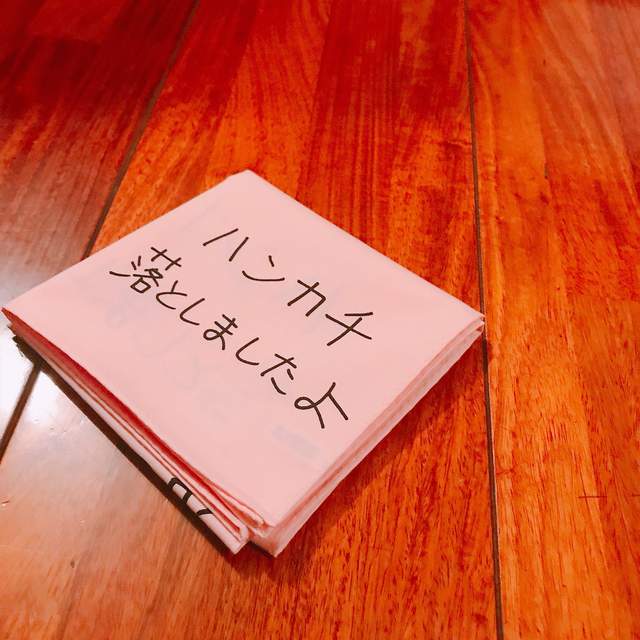 ハンカチ
落としましたよ